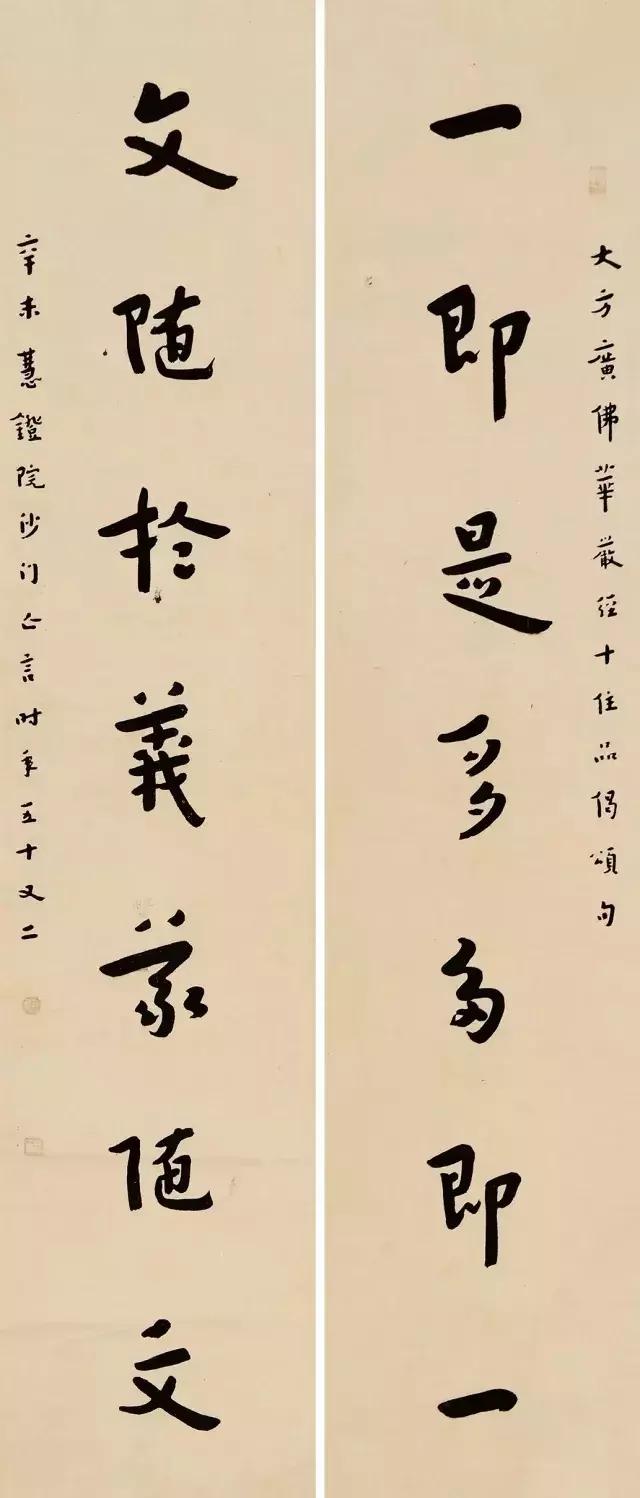 大方廣佛華嚴經十住品偈頌句
一即是多多即一
文随於義義随文
辛未慧鐙院沙门亡言时年五十又二